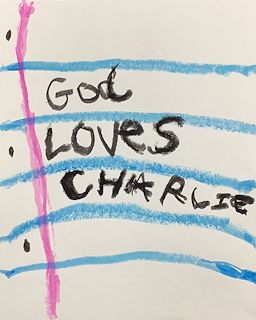 God
LOVES
CHARLIE